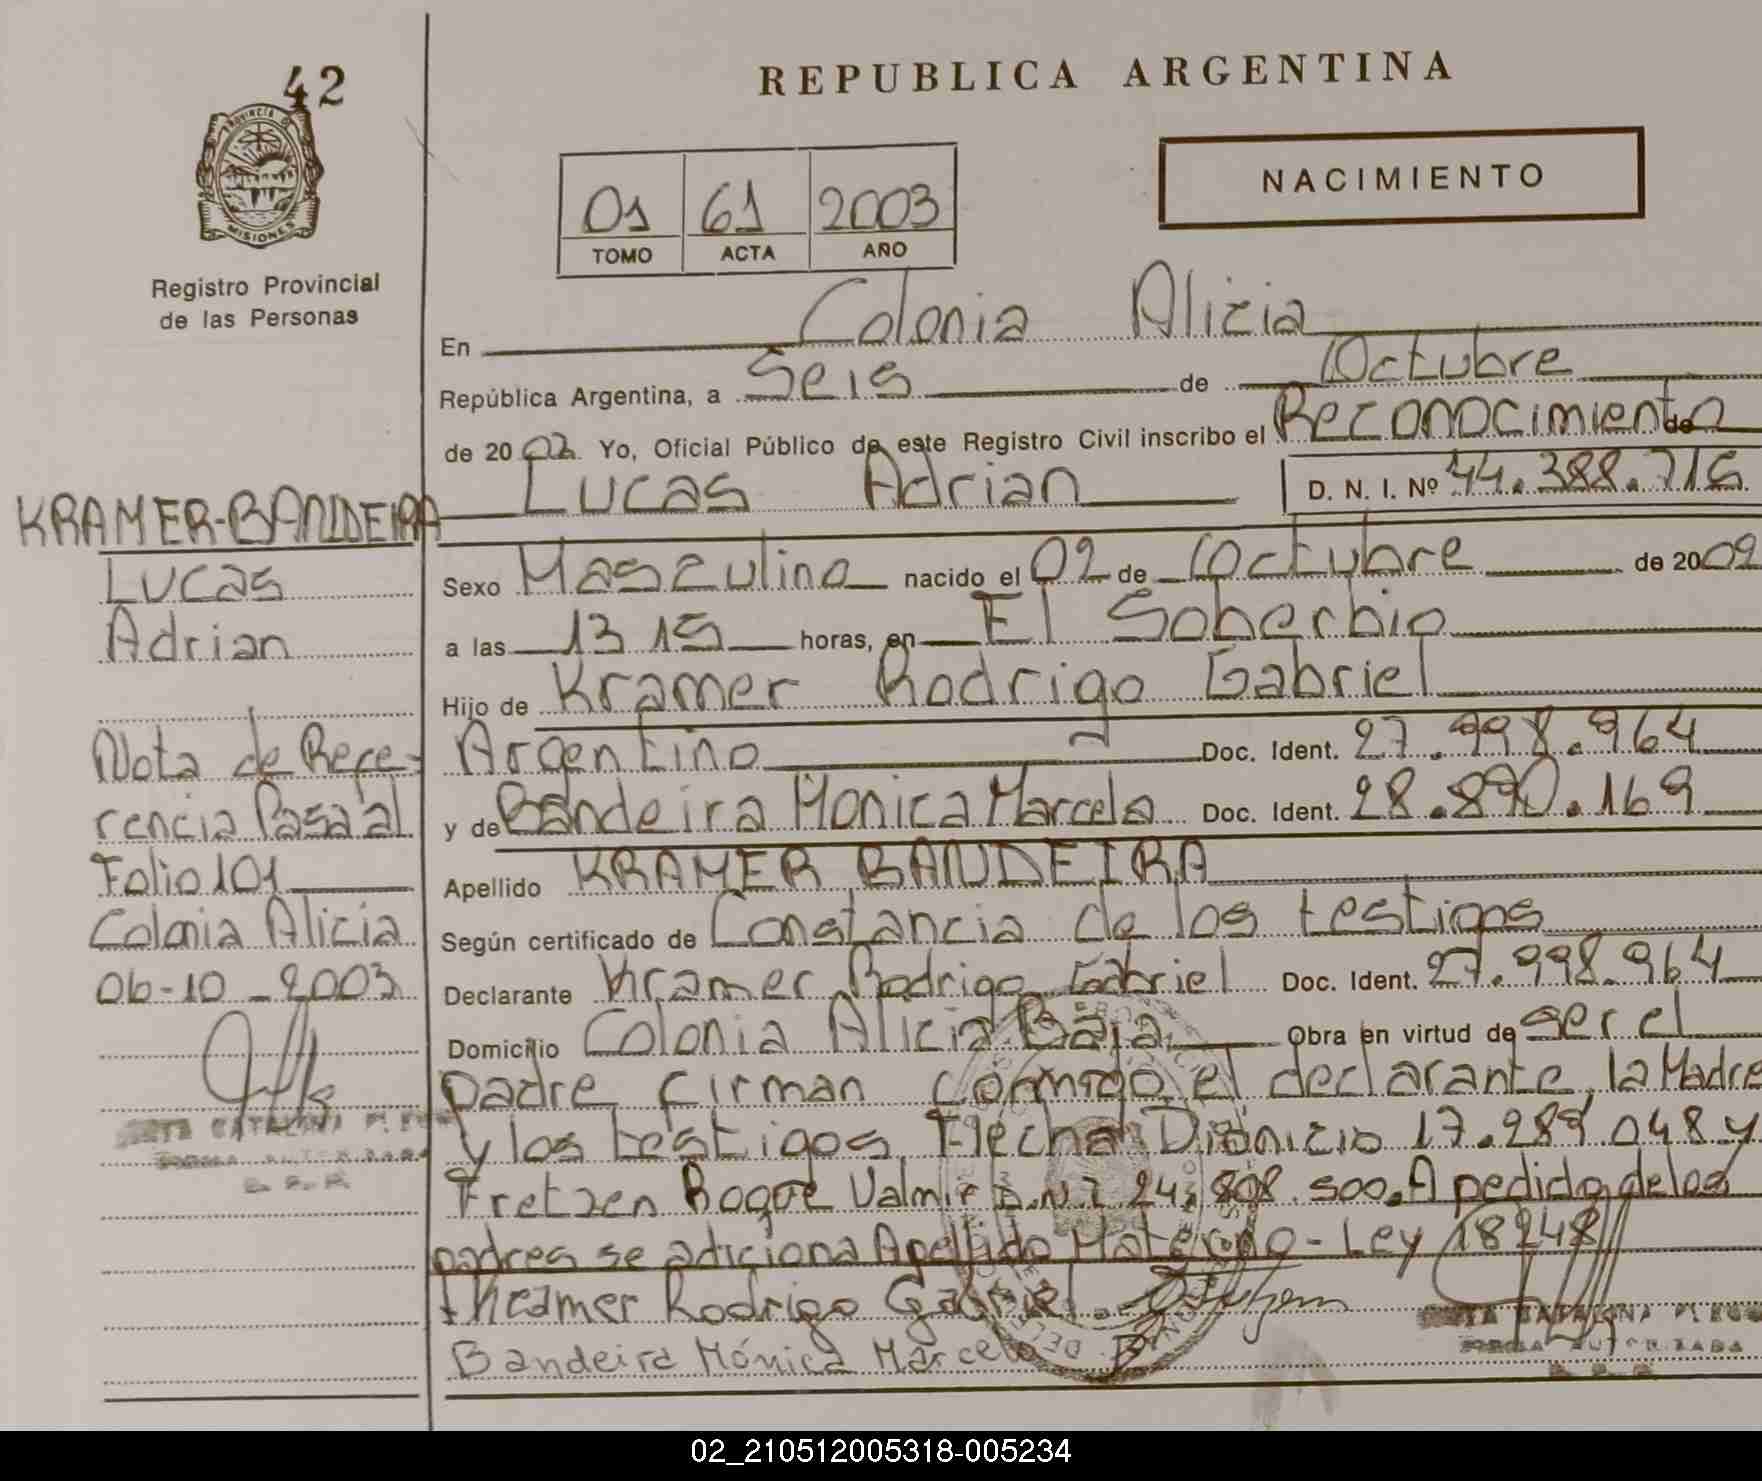 42
REPUBLICA ARGENTINA
PROVINCIA DE
MISIONES
Registro Provincial
de las Personas
01 61 2003
TOMO ACTA AÑO
NACIMIENTO
En Colonia Alicia
República Argentina, a Seis de Octubre
de 2003 Yo, Oficial Público de este Registro Civil inscribo el Reconocimiento de
Lucas Adrian D. N. I. Nº 44.388.715
Sexo Masculino nacido el 02 de Octubre de 2002
a las 13 15 horas, en El Soberbio
Hijo de Kramer Rodrigo Gabriel
Argentino Doc. Ident. 27.998.964
y de Bandeira Monica Marcela Doc. Ident. 28.890.169
Apellido KRAMER BANDEIRA
Según certificado de Constancia de los testigos
Declarante Kramer Rodrigo Gabriel Doc. Ident. 27.998.964
Domicilio Colonia Alicia Baja Obra en virtud de ser el
padre firman conmigo el declarante, la Madre
y los testigos Flecha Dionicio 17.289.048 y
Fretzen Roque Valmir D.N.I 24.808.500. A pedido de los
padres se adiciona Apellido Materno - Ley 18248
Kramer Rodrigo Gabriel
Bandeira Mónica Marcela
KRAMER-BANDEIRA
Lucas
Adrian
Nota de Refe-
rencia Pasa al
Folio 101
Colonia Alicia
06-10-2003
02_210512005318-005234